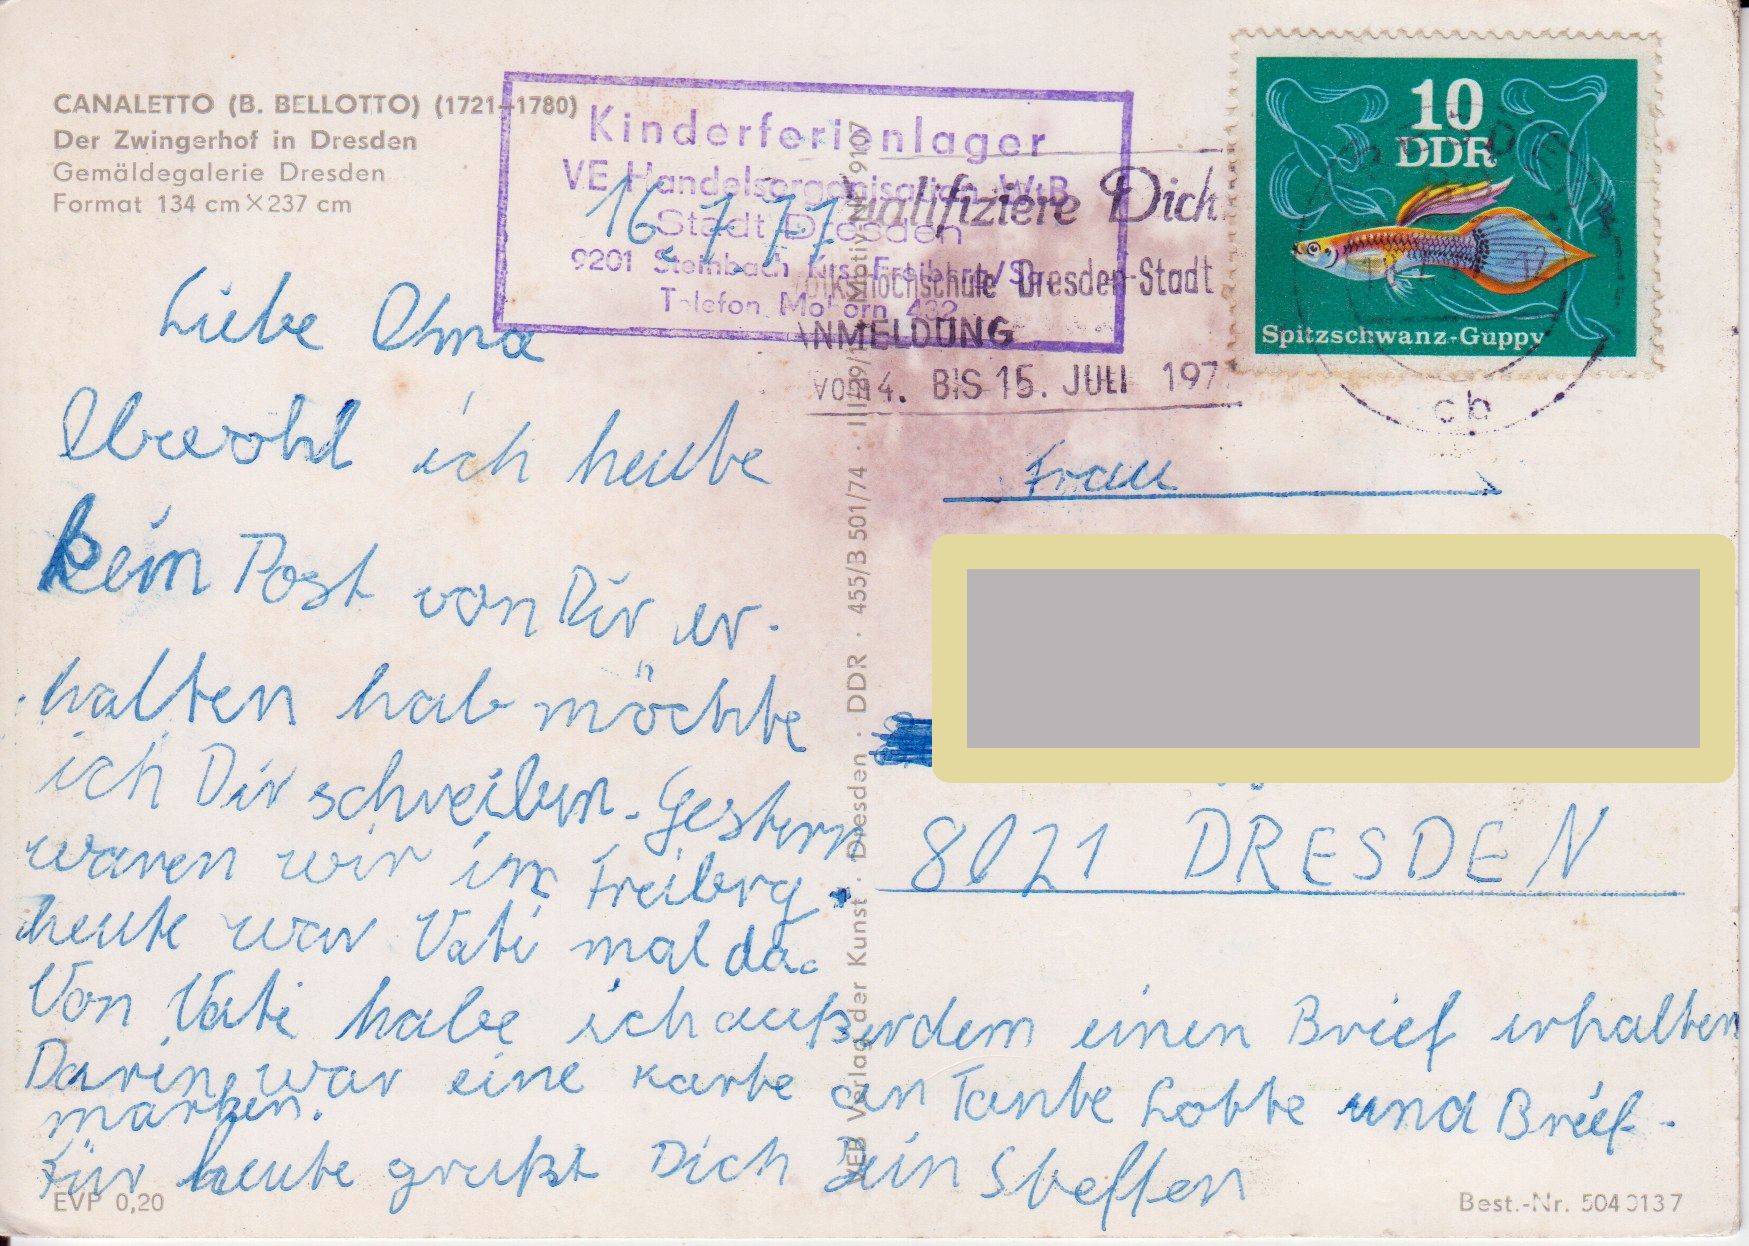 CANALETTO (B. BELLOTTO) (1721–1780)
Der Zwingerhof in Dresden
Gemäldegalerie Dresden
Format 134 cm×237 cm
Kinderferienlager
VE Handelsorganisation WtB
Stadt Dresden
9201 Steinbach Krs. Freiberg/Sa
Telefon Mohorn 432
Qualifiziere Dich
Volkshochschule Dresden-Stadt
ANMELDUNG
VOM 4. BIS 15. JULI 197
10
DDR
Spitzschwanz-Guppy
cb
16. 7. 77
Liebe Oma
Obwohl ich heute
kein Post von Dir er-
halten hab möchte
ich Dir schreiben. Gestern
waren wir in Freibrg.
heute war Vati mal da.
Von Vati habe ich außerdem einen Brief erhalten
Darin war eine Karte an Tante Lotte und Brief-
marken.
Für heute grüßt Dich Dein Steffen
Frau
8021 DRESDEN
VEB Verlag der Kunst · Dresden · DDR · 455/B 501/74 ·
EVP 0,20
Best.-Nr. 5040137